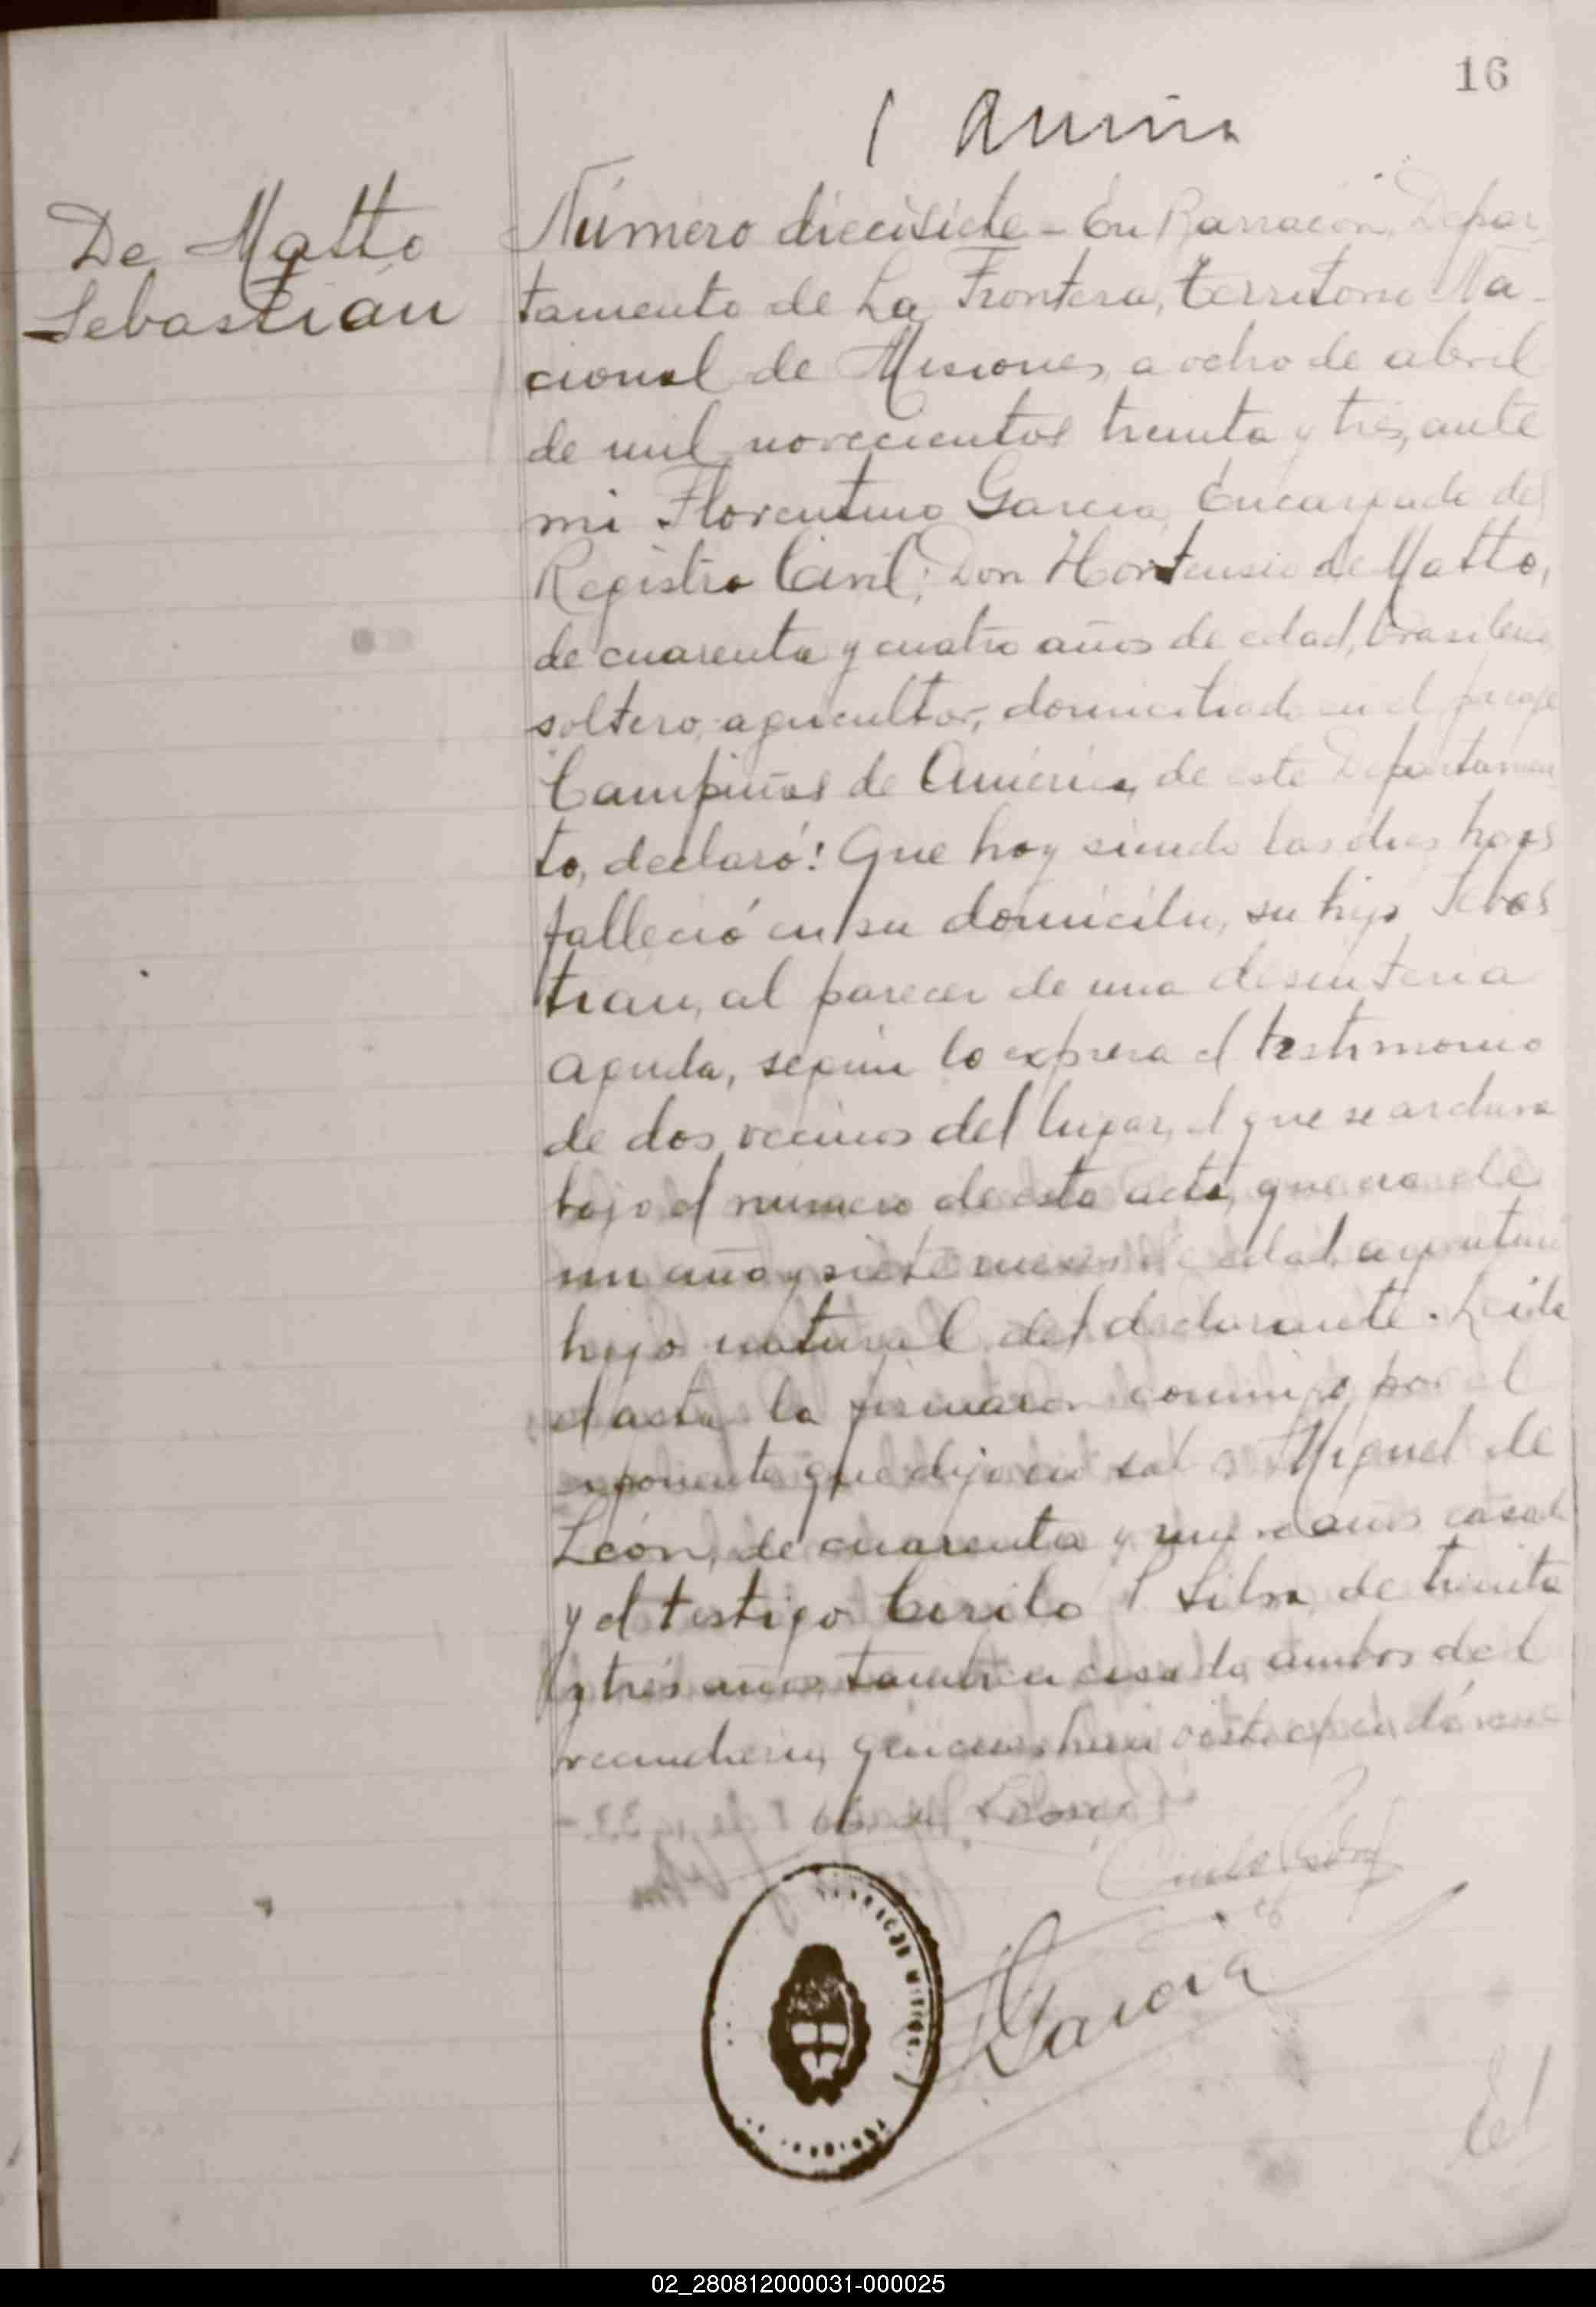 16
De Matto
Sebastián
Número diecisiete - En Barracón, Depar-
tamento de La Frontera, territorio Na-
cional de Misiones, a ocho de abril
de mil novecientos treinta y tres, ante
mi Florentino Garcia, Encargado del
Registro Civil; Don Hortensio de Matto,
de cuarenta y cuatro años de edad, brasileño
soltero, agricultor, domiciliado en el paraje
Campiñas de América, de este Departamen
to, declaró: Que hoy siendo las dies horas
falleció en su domicilio, su hijo Sebas
tian, al parecer de una desinteria
aguda, según lo expresa el testimonio
de dos vecinos del lugar, el que se archiva
bajo el número de esta acta, que era de
un año y siete meses de edad, argentino
hijo natural del declarante. Leida
el acta la firmaron conmigo, por el
exponente que dijo no sab Miguel de
León, de cuarenta y nueve años casado
y el testigo Cirilo Silva de treinta
y tres años, tambien casado, ambos del
vecindario, quienes han visto el cadáver
Garcia
El
02_280812000031-000025